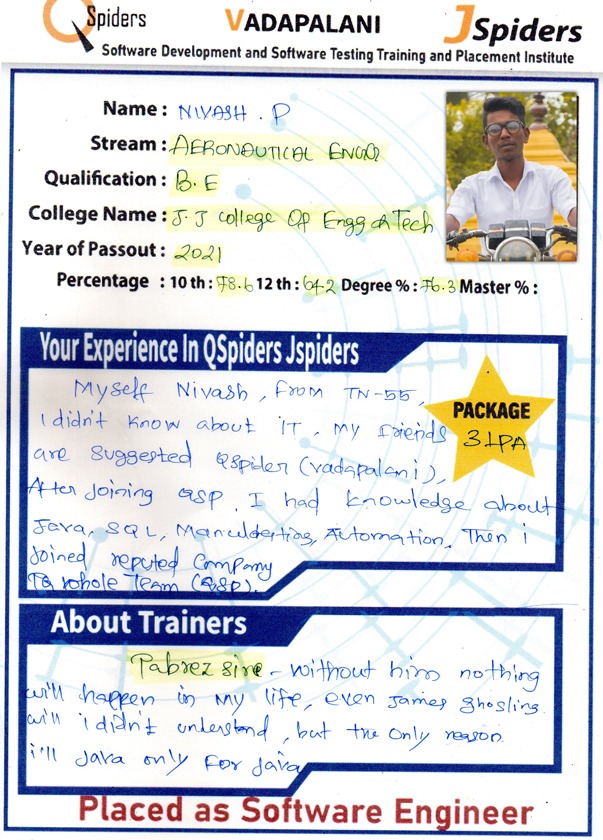 QSpiders VADAPALANI JSpiders
Software Development and Software Testing Training and Placement Institute
Name : NIVASH . P
Stream : AERONAUTICAL ENGG
Qualification : B.E
College Name : J.J college Of Engg & Tech
Year of Passout : 2021
Percentage : 10 th : 78.6 12 th : 64.2 Degree % : 76.3 Master % :
Your Experience In QSpiders Jspiders
Myself Nivash, From TN-55,
I didn't know about IT, my friends
are suggested Qspider (vadapalani),
After Joining QSP, I had knowledge about
Java, SQL, Automation, Then i
Joined reputed Company
whole Team (QSP).
PACKAGE
3 LPA
About Trainers
Pabrez sir - without him nothing
will happen in my life, even James ghosling
will i didn't understand, but the only reason
i'll Java only For Java
Placed as Software Engineer